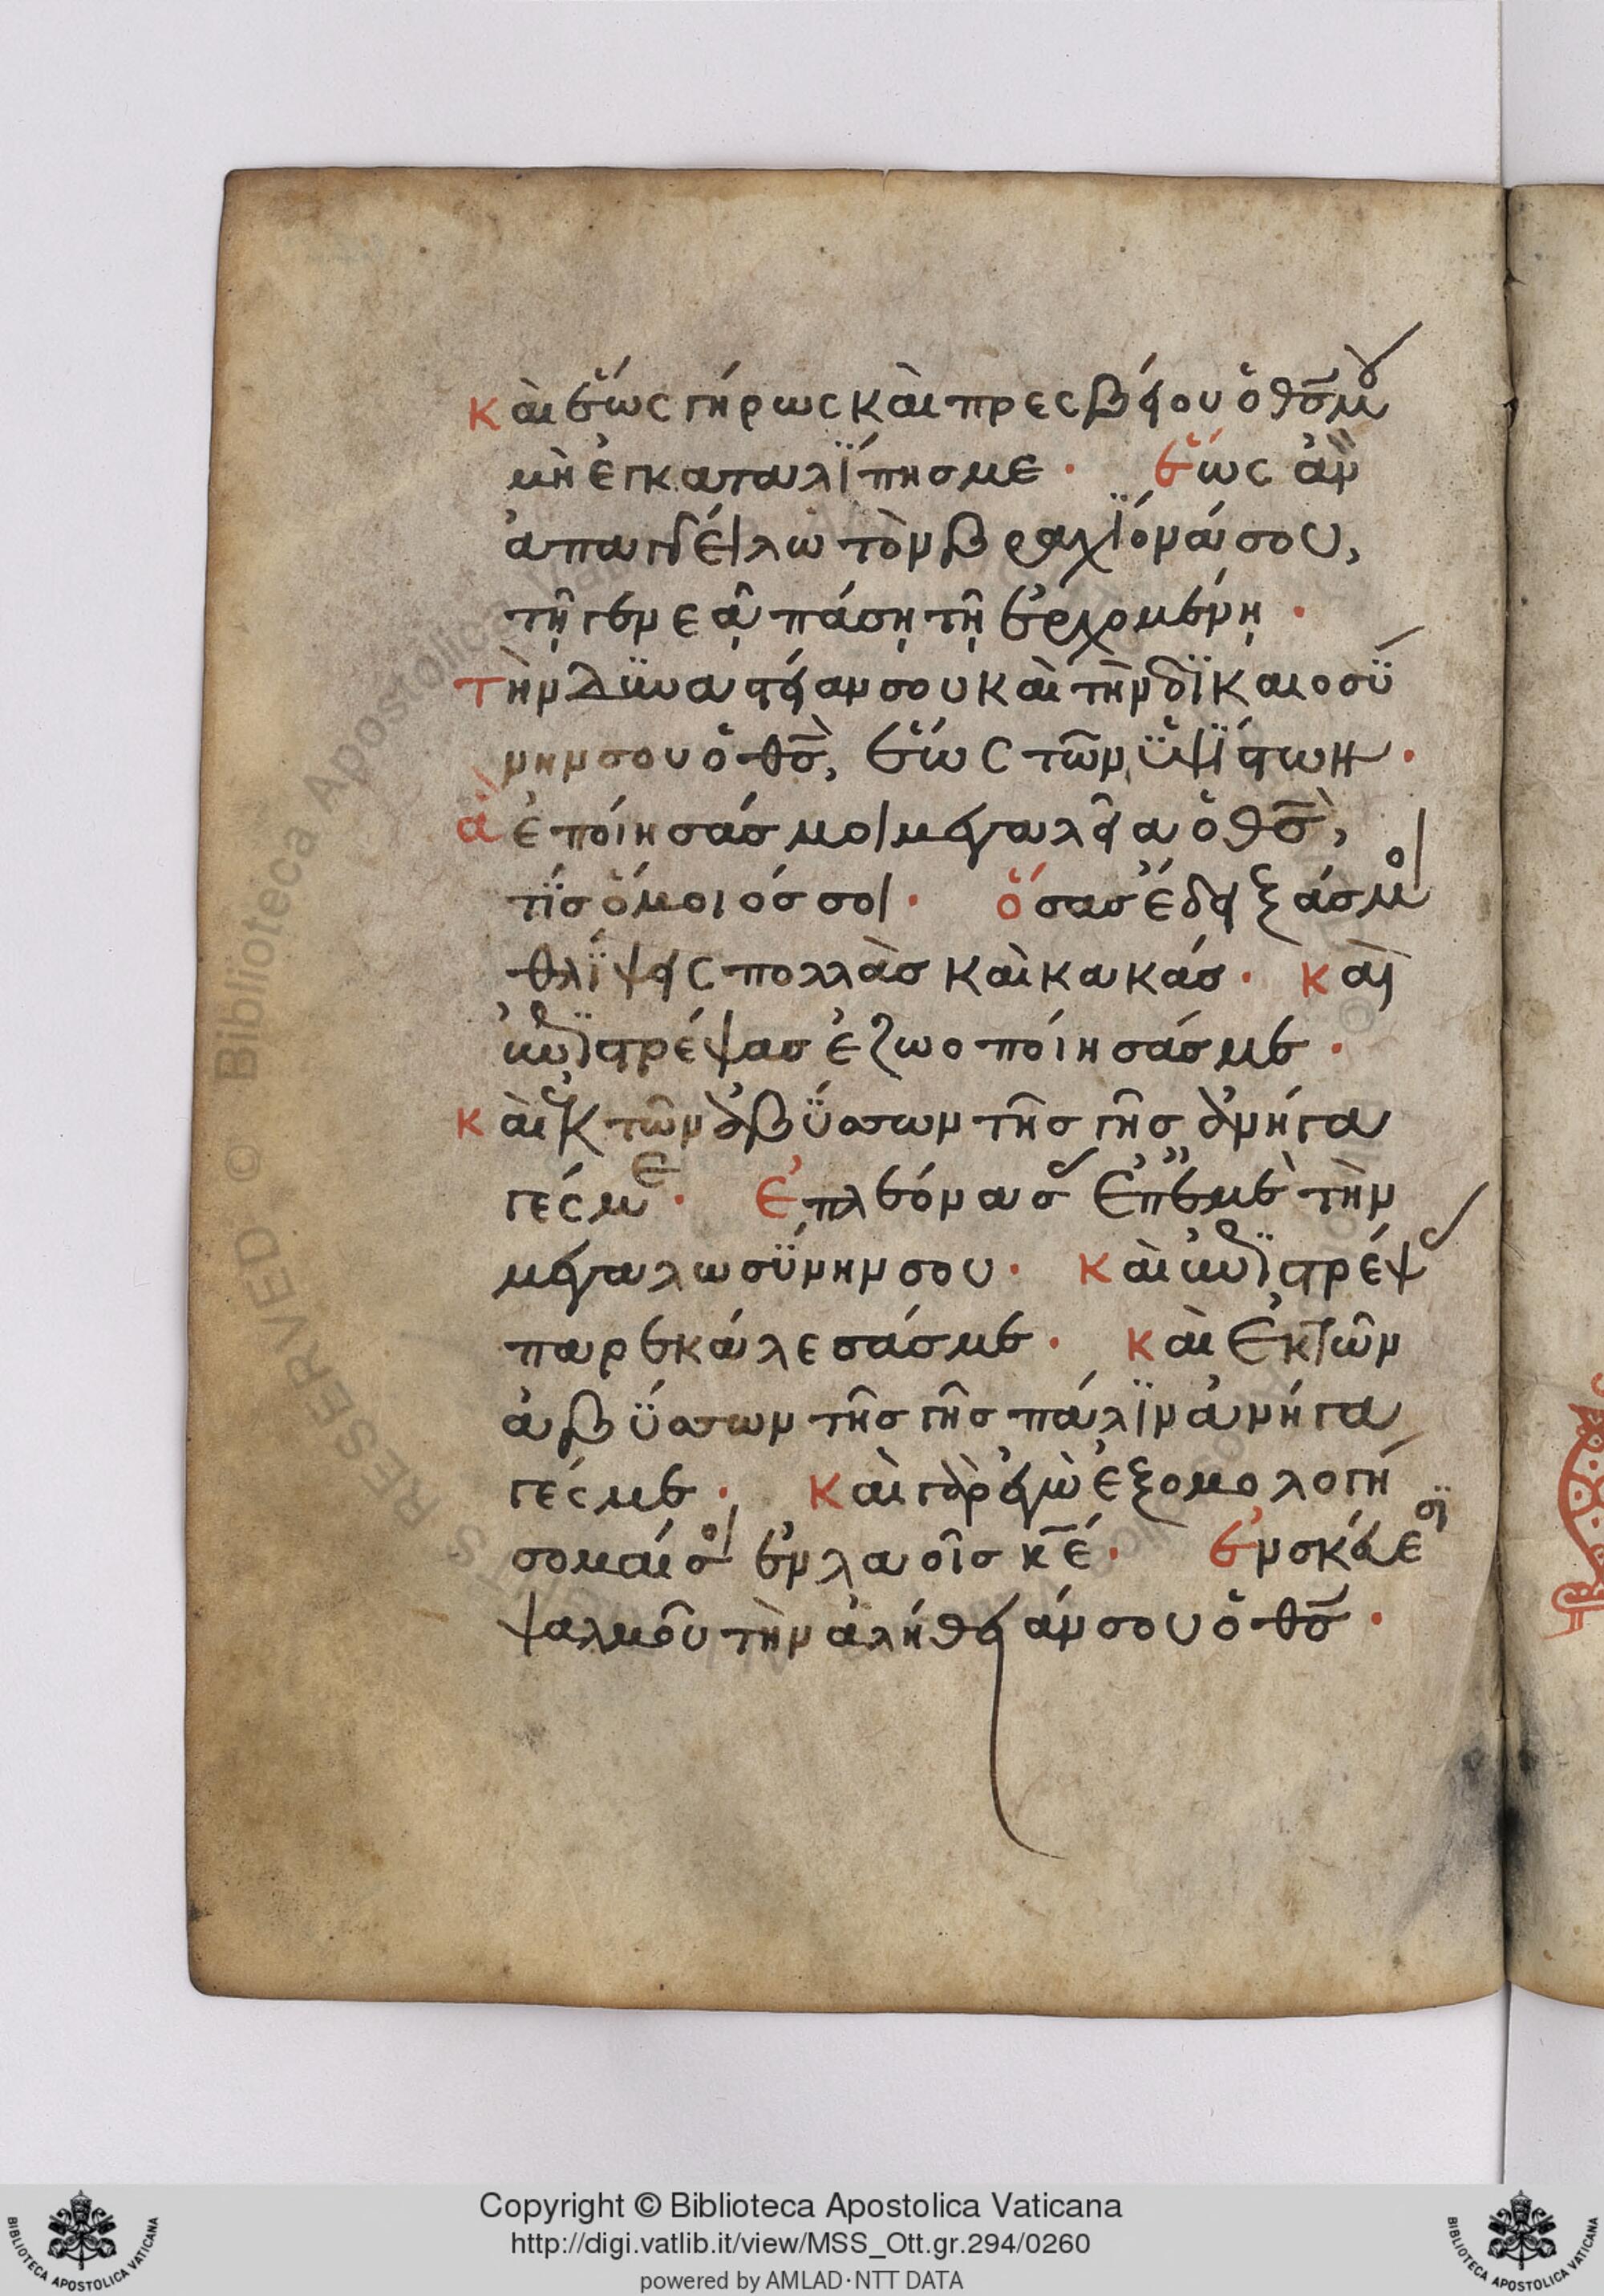 καὶ ἕως γήρως καὶ πρεσβείου ὁ θς μου
μὴ ἐγκαταλΐπησ με · ἕως ἂν
ἀπαγγείλω τὸν βραχΐονά σου,
τῇ γενεᾷ πάσῃ τῇ ἐρχομένῃ ·
τὴν δϋναστείαν σου καὶ τὴν δΐκαιοσϋ
νην σου ὁ θς, ἕως τῶν ϋψΐστων ·
ἃ ἐποίησάσ μοι μεγαλεῖα ὁ θς,
τΐσ ὅμοιόσ σοι · ὅσασ ἔδειξάσ μοι
θλΐψεις πολλὰσ καὶ κακάσ · καὶ
ἐπιστρέψασ ἐζωοποίησάσ με ·
καὶ ἐκ τῶν ἀβϋσσων τῆσ γῆσ ἀνήγα
γές με · ἐπλεόνασασ ἐπ' ἐμὲ τὴν
μεγαλωσϋνην σου · καὶ ἐπιστρέψασ
παρεκάλεσάσ με · καὶ ἐκ τῶν
ἀβϋσσων τῆσ γῆσ πάλΐν ἀνήγα
γές με · καὶ γὰρ ἐγὼ ἐξομολογή
σομαί σοι ἐν λαοῖσ κε · ἐν σκεύεσϊ
ψαλμοῦ τὴν ἀλήθειάν σου ὁ θς ·
Copyright © Biblioteca Apostolica Vaticana
http://digi.vatlib.it/view/MSS_Ott.gr.294/0260
powered by AMLAD·NTT DATA